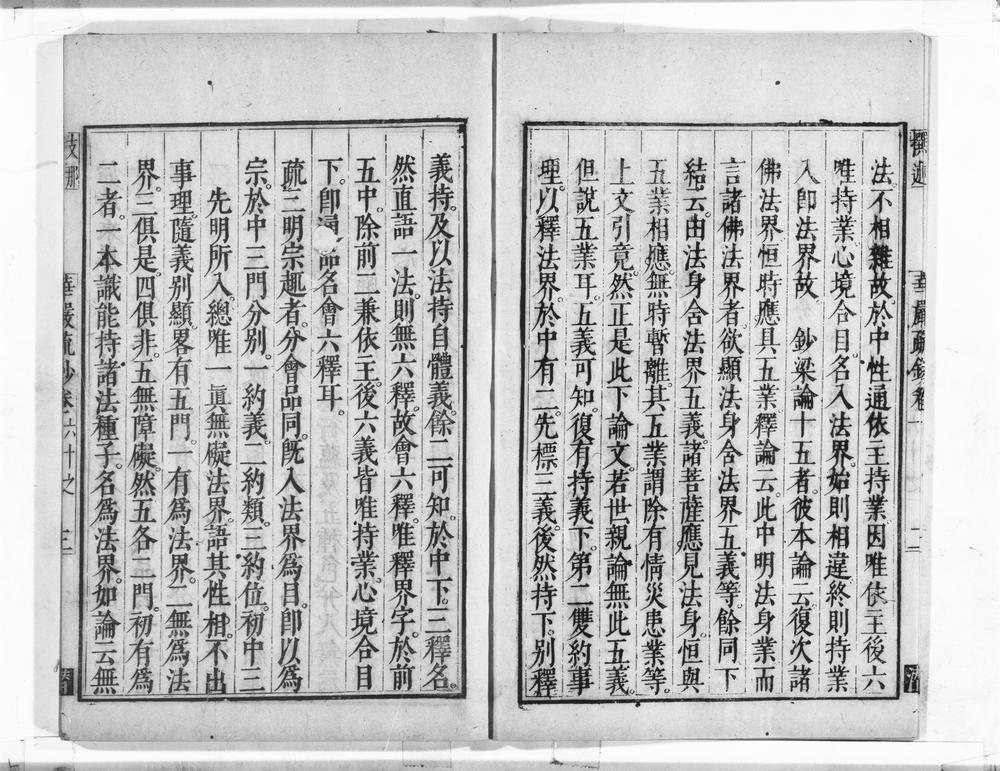 法不相雜故於中性通依主持業因唯依主後六
唯持業心境合目名入法界始則相違終則持業
入卽法界故　鈔梁論十五者彼本論云復次諸
佛法界恒時應具五業釋論云此中明法身業而
言諸佛法界者欲顯法身含法界五義等餘同下
結云由法身含法界五義諸菩薩應見法身恒與
五業相應無時暫離其五業謂除有情災患業等
上文引竟然正是此下論文若世親論無此五義
但說五業耳五義可知復有持義下第二雙約事
理以釋法界於中有二先標三義後然持下別釋
義持及以法持自體義餘二可知於中下三釋名
然直語一法則無六釋故會六釋唯釋界字於前
五中除前二兼依王後六義皆唯持業心境合目
下卽通品名會六釋耳
疏三明宗趣者分會品同旣入法界爲目卽以爲
宗於中三門分別一約義二約類三約位初中三
先明所入總唯一眞無礙法界語其性相不出
事理隨義別顯畧有五門一有爲法界二無爲法
界三俱是四俱非五無障礙然五各二門初有爲
二者一本識能持諸法種子名爲法界如論云無
華嚴疏鈔卷六十之
三
二